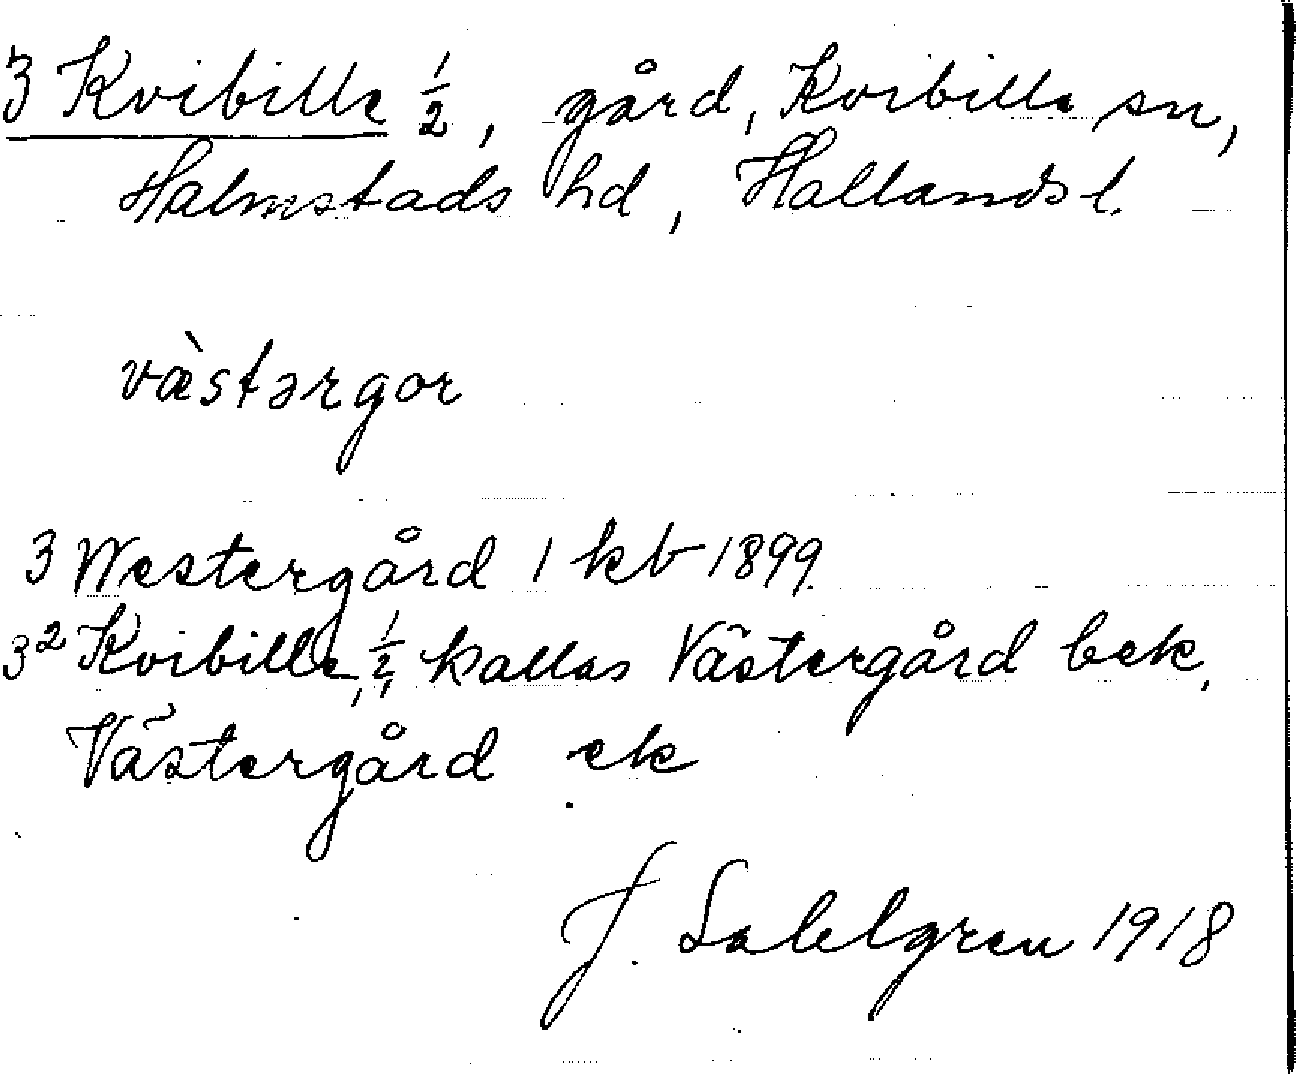 3 Kvibille 1/2, gård, Kvibille sn,
Halmstads hd, Hallands l.
væ̀stərgor
3 Westergård 1 kb 1899
3² Kvibille, 1/2, kallas Västergård bek,
Västergård ek
J. Sahlgren 1918